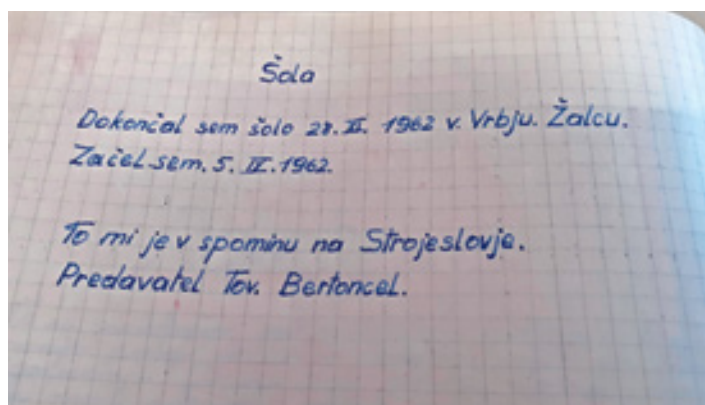 Šola
Dokončal sem šolo 28. XI. 1962 v. Vrbju. Žalcu.
Začel sem. 5. IX. 1962.
To mi je v spominu na Strojeslovje.
Predavatel Tov. Bertoncel.